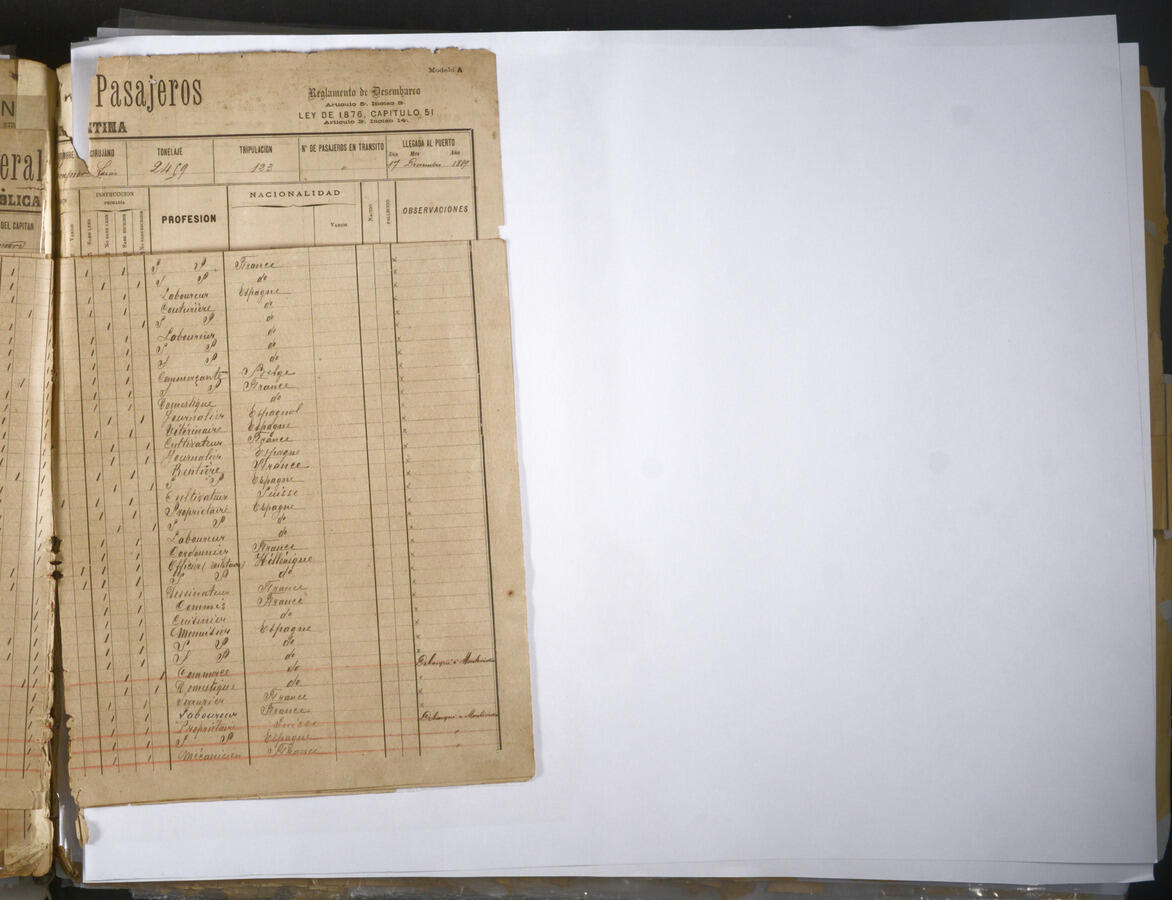 Modelo A
Pasajeros
Reglamento de Desembarco
Articulo 5. Inciso 3.
LEY DE 1876, CAPITULO 51
Articulo 3. Inciso 14.
TINA
N
eral
BLICA
DEL CAPITAN
CIRUJANO
TONELAJE
TRIPULACION
Nº DE PASAJEROS EN TRANSITO
LLEGADA AL PUERTO
Dia Mes Año
133
17
INSTRUCCION
PRIMARIA
PROFESION
NACIONALIDAD
Varon
OBSERVACIONES
S P France
S P do
Laboureur Espagne
Couturière do
S P do
Laboureur do
S P do
S P do
Commerçante Belge
S P France
Domestique do
Journalier Espagnol
Vétérinaire Espagne
Cultivateur France
Journalier Espagne
Rentière France
S P Espagne
Cultivateur Suisse
Propriétaire Espagne
S P do
Laboureur do
Cordonnier France
Officier Hellénique
S P do
Dessinateur France
Commis France
Cuisinier do
Menuisier Espagne
S P do
S P do
Commerce do
Domestique do
France
Laboureur France
Propriétaire Suisse
S P Espagne
Mécanicien France